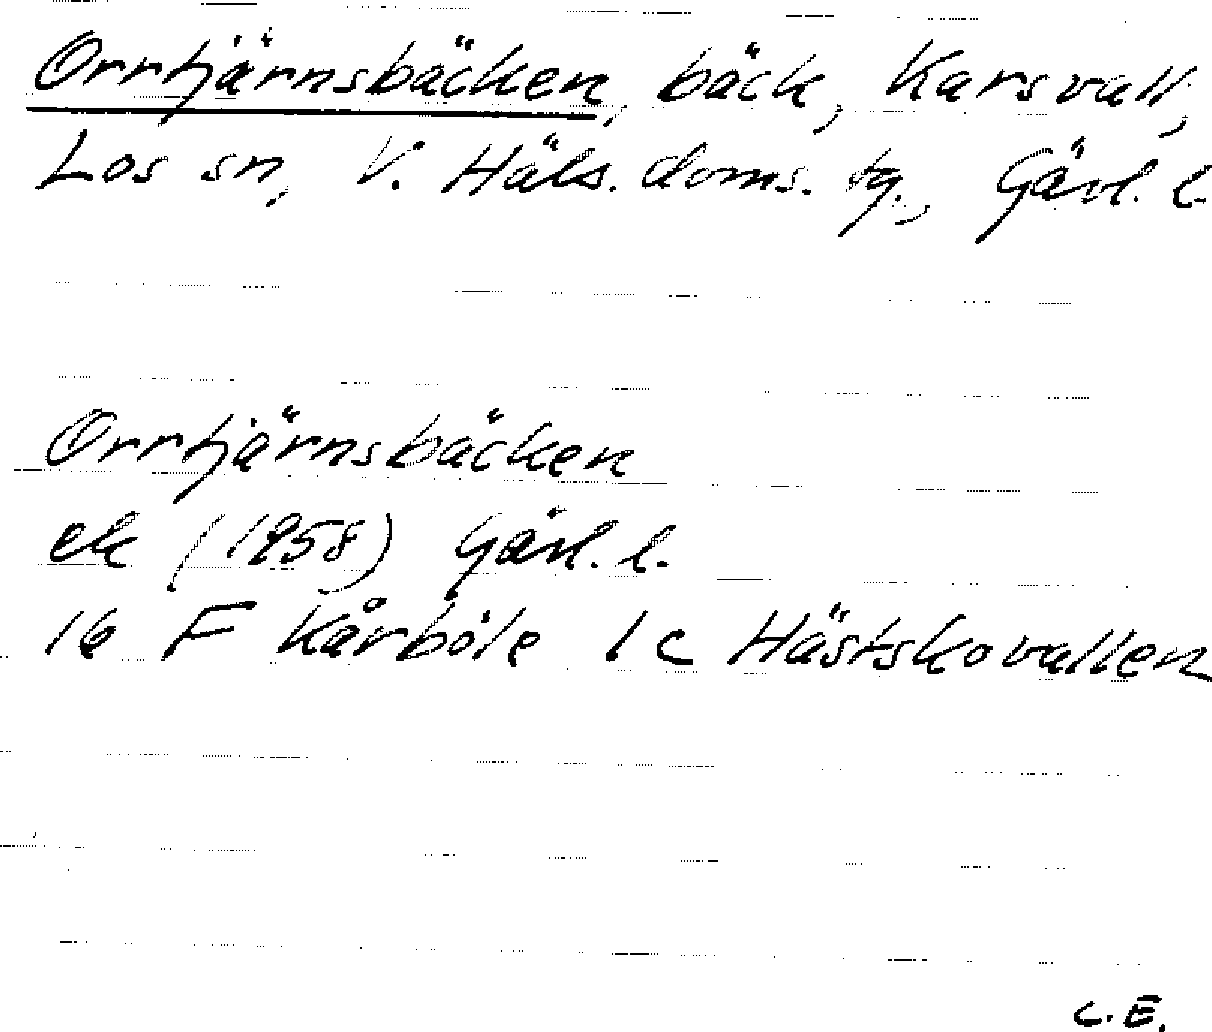 Orrtjärnsbäcken, bäck, Karsvall,
Los sn, V. Häls. doms. tg., Gävl. l.
Orrtjärnsbäcken
ek (1958) Gävl. l.
16 F Kårböle 1 c Hästskovallen
C.E.